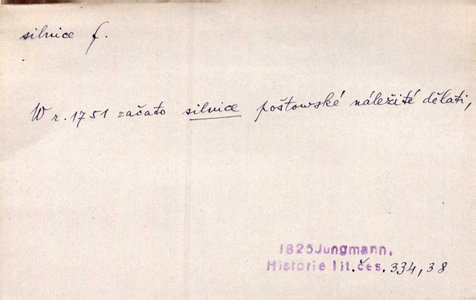 silnice f.
W r. 1751 začato silnice poštowské náležité dělati,
1825 Jungmann,
Historie lit. čes. 334,38